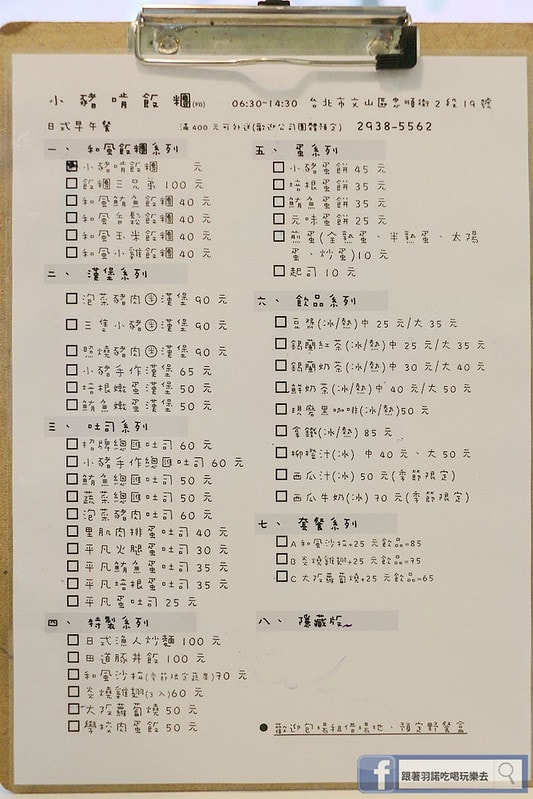 小豬啃飯糰(FD) 06:30-14:30 台北市文山區忠順街2段19號
日式早午餐 滿400元可外送(歡迎公司團體預定) 2938-5562
一、和風飯糰系列
小豬啃飯糰 元
飯糰三兄弟 100 元
和風鮪魚飯糰 40 元
和風香鬆飯糰 40 元
和風玉米飯糰 40 元
和風小雞飯糰 40 元
二、漢堡系列
泡菜豬肉㊣漢堡 90 元
三隻小豬㊣漢堡 90 元
照燒豬肉㊣漢堡 90 元
小豬手作漢堡 65 元
培根嫩蛋漢堡 50 元
鮪魚嫩蛋漢堡 50 元
三、吐司系列
招牌總匯吐司 60 元
小豬手作總匯吐司 60 元
鮪魚總匯吐司 50 元
蔬菜總匯吐司 50 元
泡菜豬肉吐司 60 元
里肌肉排蛋吐司 40 元
平凡火腿蛋吐司 30 元
平凡鮪魚蛋吐司 35 元
平凡培根蛋吐司 35 元
平凡蛋吐司 25 元
四、特製系列
日式漁人炒麵 100 元
田道豚丼飯 100 元
和風沙拉(季節限定蔬果)70 元
炎燒雞翅(3入)60 元
大阪蘿蔔燒 50 元
學校肉蛋飯 50 元
五、蛋系列
小豬蛋餅 45 元
培根蛋餅 35 元
鮪魚蛋餅 35 元
元味蛋餅 25 元
煎蛋(全熟蛋、半熟蛋、太陽
蛋、炒蛋)10 元
起司 10 元
六、飲品系列
豆漿(冰/熱)中 25 元/大 35 元
錫蘭紅茶(冰/熱)中 25 元/大 35 元
錫蘭奶茶(冰/熱)中 30 元/大 40 元
鮮奶茶(冰/熱)中 40 元/大 50 元
現磨黑咖啡(冰/熱)50 元
拿鐵(冰/熱) 85 元
柳橙汁(冰) 中 40 元、大 50 元
西瓜汁(冰) 50 元(季節限定)
西瓜牛奶(冰) 70 元(季節限定)
七、套餐系列
A 和風沙拉+25 元飲品=85
B 炎燒雞翅+25 元飲品=75
C 大阪蘿蔔燒+25 元飲品=65
八、隱藏版~
●歡迎包場租借場地、預定野餐盒
跟著羽諾吃喝玩樂去